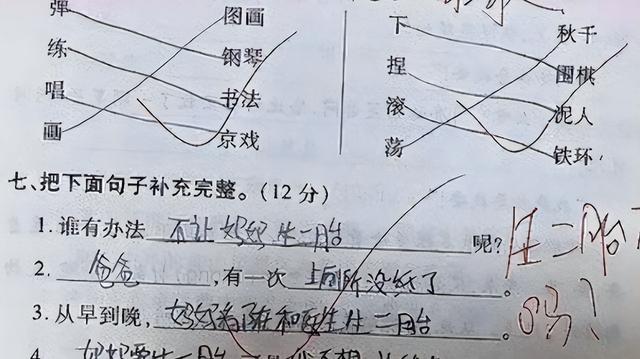 弹 图画 下 秋千
练 钢琴 捏 围棋
唱 书法 滚 泥人
画 京戏 荡 铁环
七、把下面句子补充完整。(12分)
1. 谁有办法 不让妈妈生二胎 呢?
生二胎
吗?
2. 爸爸 ,有一次 上厕所没纸了 。
3. 从早到晚, 妈妈 和 生二胎 。
4. 妈妈要生二胎